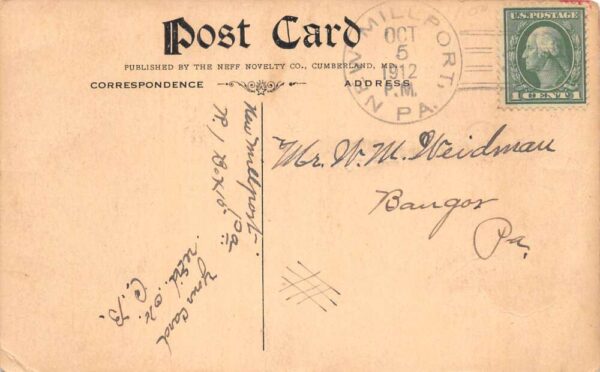 Post Card
PUBLISHED BY THE NEFF NOVELTY CO., CUMBERLAND, MD.
CORRESPONDENCE
ADDRESS
NEW MILLPORT,
OCT
5
1912
P.M.
PA.
U.S. POSTAGE
1 CENT 1
New Millport
Pa
R, 1 Box
Your Card
rec'd. ok.
C. B.
Mr. W. M. Weidman
Bangor
Pa.